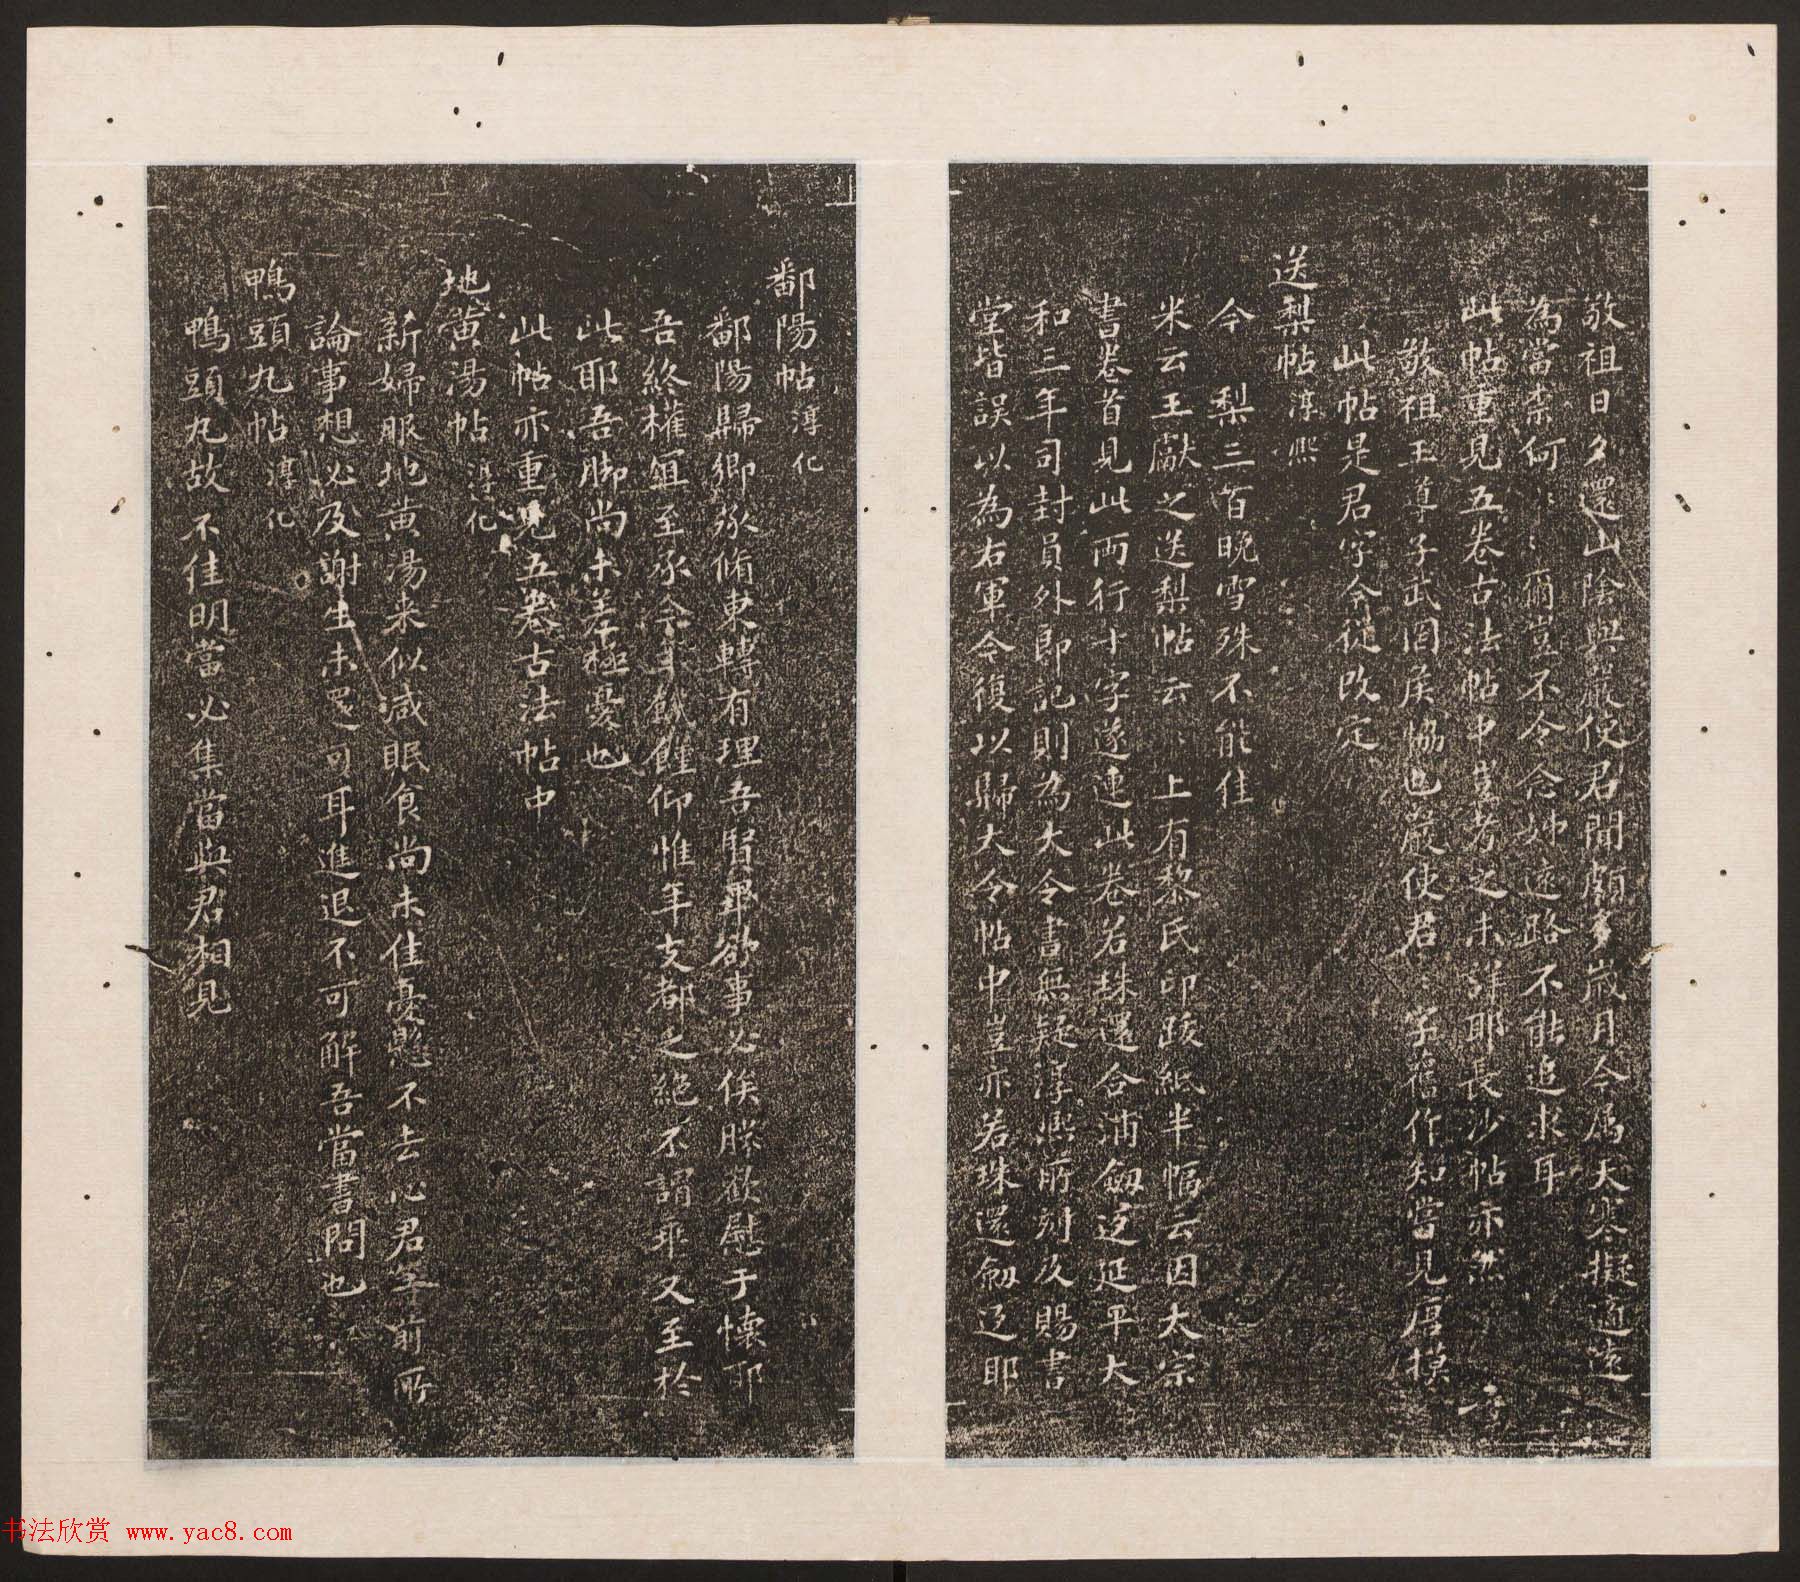 敬祖日夕還山陰與嚴使君聞頗多歲月今屬天寒擬適遠
為當柰何〻爾豈不令念姊遠路不能追求耳
此帖重見五卷古法帖中豈考之未詳耶長沙帖亦然
敬祖王導子武罔侯恊也嚴使君〻字舊作知嘗見唐摸
此帖是君字今從改定
送梨帖 淳熙
今 梨三百晚雪殊不能佳
米云王獻之送梨帖云〻上有黎氏印跋紙半幅云因太宗
書卷首見此兩行十字遂連此卷若珠還合浦劔迓延平大
和三年司封員外郎記則為大令書無疑淳熙所刻及賜書
堂皆誤以為右軍今復以歸大令帖中豈亦若珠還劔迓耶
鄱陽帖 淳化
鄱陽歸鄉承脩東轉有理吾賢畢欲事必俟勝歡慰于懷耶
吾終權宜至承今年飢饉仰惟年支都乏絕不謂乖又至於
此耶吾脚尚未差極憂也
此帖亦重見五卷古法帖中
地黃湯帖 淳化
新婦服地黃湯来似減眠食尚未佳憂懸不去心君等前所
論事想必及謝生未還可耳進退不可解吾當書問也
鴨頭丸帖 淳化
鴨頭丸故不佳明當必集當與君相見
书法欣赏 www.yac8.com